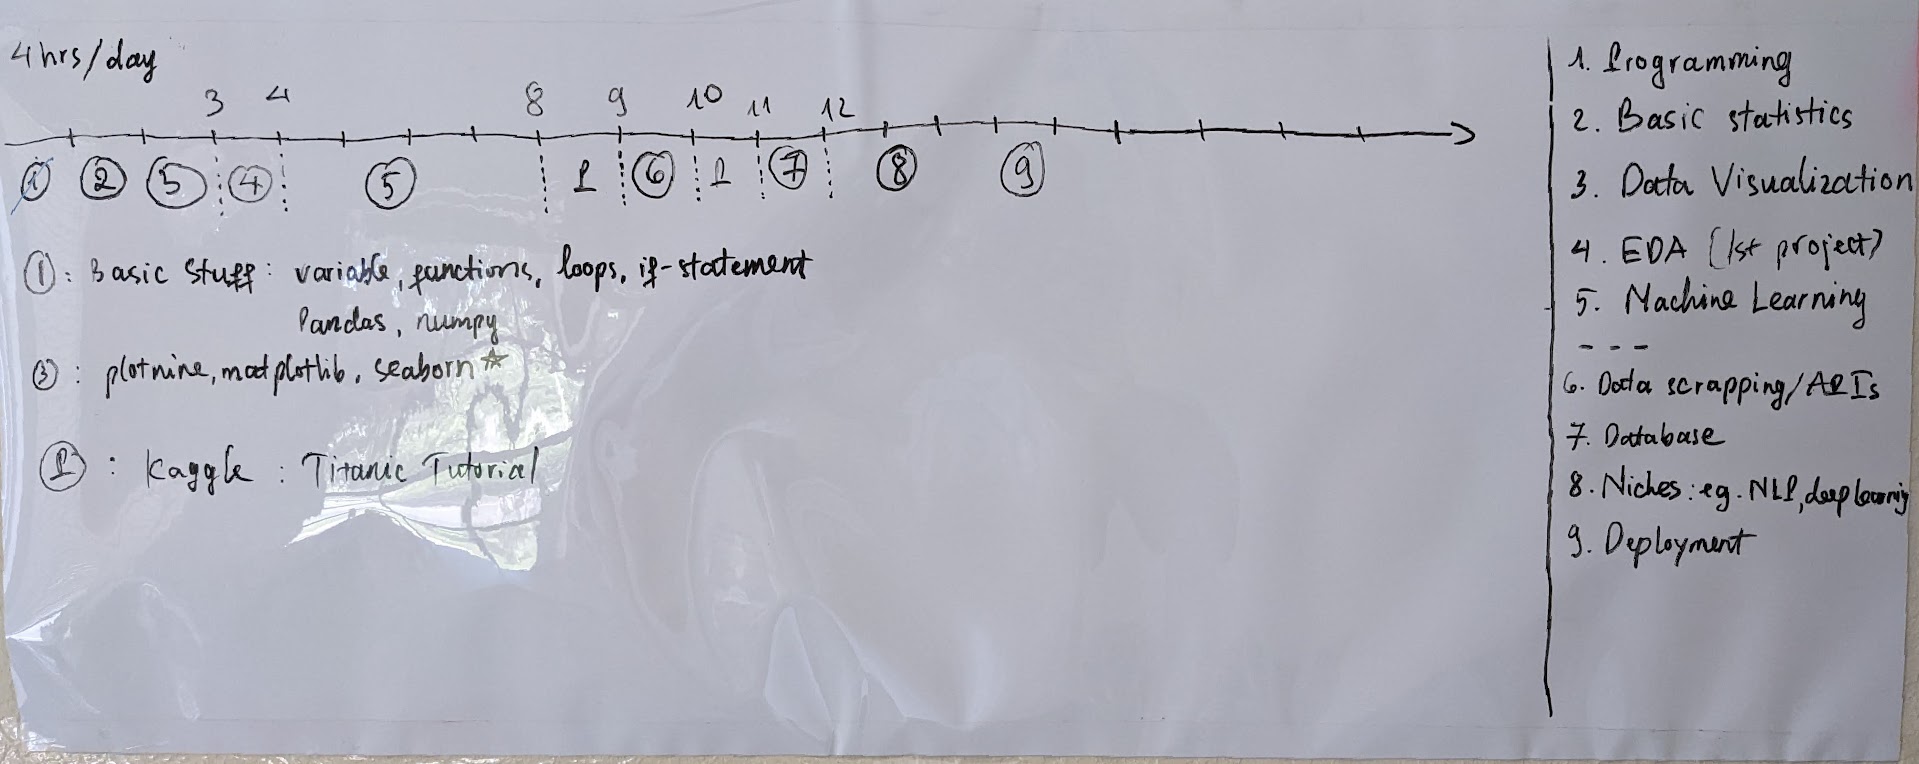 4 hrs/day
3 4 8 9 10 11 12
1 2 3 4 5 P 6 P 7 8 9
①: Basic Stuff: variable, functions, loops, if-statement
Pandas, numpy
③: plotnine, matplotlib, seaborn ☆
Ⓟ: Kaggle: Titanic Tutorial
1. Programming
2. Basic statistics
3. Data Visualization
4. EDA (1st project)
5. Machine Learning
---
6. Data scrapping/APIs
7. Database
8. Niches: eg. NLP, deep learning
9. Deployment